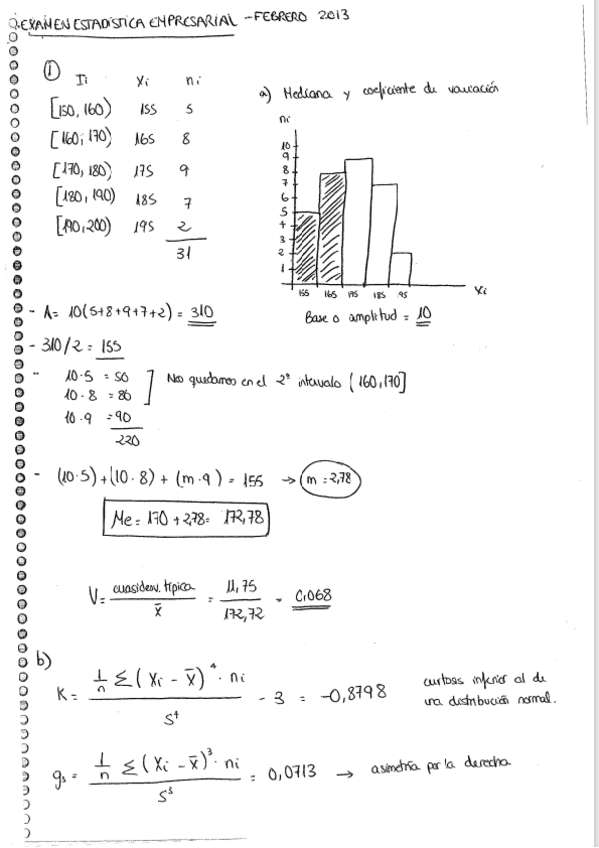 EXAMEN ESTADÍSTICA EMPRESARIAL - FEBRERO 2013
①
Ii xi ni
[150, 160) 155 5
[160, 170) 165 8
[170, 180) 175 9
[180, 190) 185 7
[190, 200) 195 2
31
a) Mediana y coeficiente de variación
ni
10
9
8
7
6
5
4
3
2
1
155 165 175 185 95 xi
Base o amplitud = 10
- A = 10(5+8+9+7+2) = 310
- 310/2 = 155
- 10·5 = 50
10·8 = 80
Nos quedamos en el 2º intervalo (160, 170]
10·9 = 90
220
- (10·5) + (10·8) + (m·9) = 155 → m = 2,78
Me = 170 + 2,78 = 172,78
V = cuasidesv. típica / x̄ = 11,75 / 172,72 = 0,068
b)
K = 1/n Σ (xi - x̄)⁴ · ni / S⁴ - 3 = -0,8798
curtosis inferior al de
una distribución normal.
gs = 1/n Σ (xi - x̄)³ · ni / S³ = 0,0713 → asimetría por la derecha